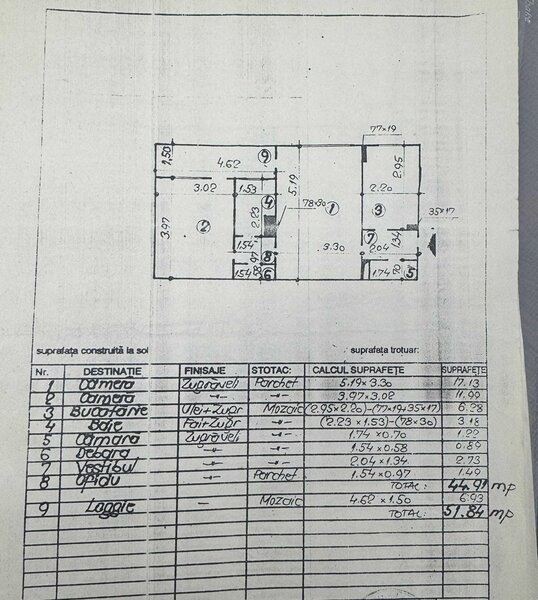 77×19
1,50
4.62
9
5.19
2.95
3.02
1.53
2.20
4
78×30
1
3
35×17
3.97
2
2.23
7
1.34
1.54
97
8
3.30
2.04
1.54
88
6
1.74
70
5
suprafaţa construită la sol
suprafaţa trotuar:
Nr. DESTINAŢIE FINISAJE STOTAC: CALCUL SUPRAFEŢE SUPRAFEŢE
1 Camera Zugraveli Parchet 5.19×3.30 17.13
2 Camera -"- -"- 3.97×3.02 11.99
3 Bucatarie Ulei+Zugr Mozaic (2.95×2.20)-(77×19+35×17) 6.28
4 Baie Fai+Zugr -"- (2.23×1.53)-(78×30) 3.18
5 Camară Zugraveli -"- 1.74×0.70 1.22
6 Debara -"- -"- 1.54×0.58 0.89
7 Vestibul -"- -"- 2.04×1.34 2.73
8 -"- Parchet 1.54×0.97 1.49
TOTAL: 44.91 mp
9 Loggie — Mozaic 4.62×1.50 6.93
TOTAL: 51.84 mp